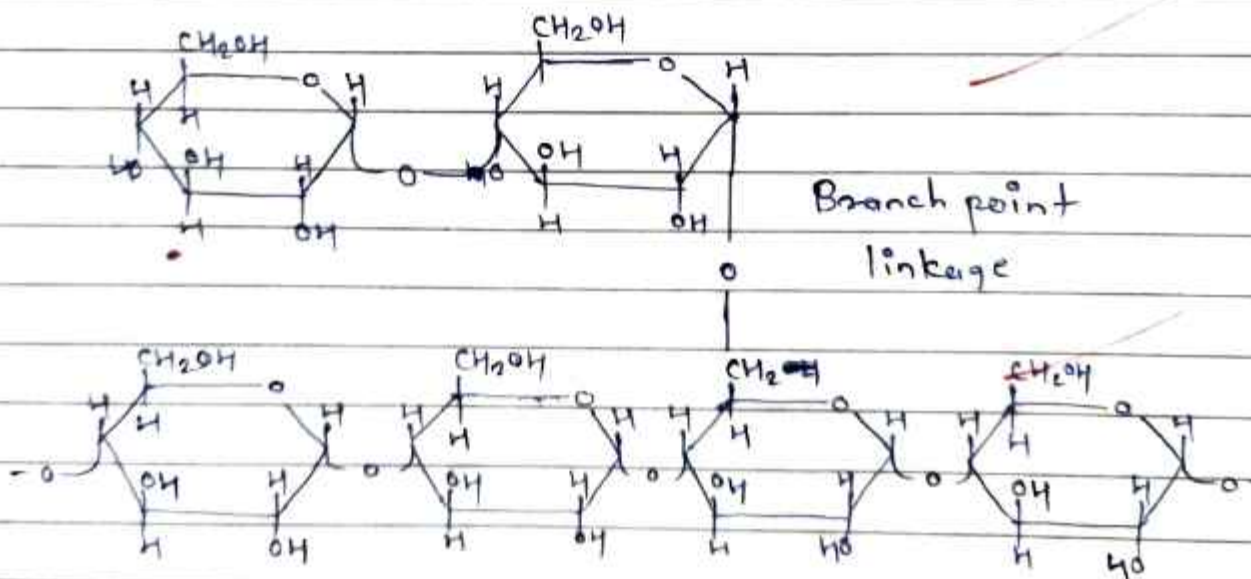 CH2OH CH2OH
O O
H H H H
H
HO OH H O O OH H
H OH H OH
Branch point
linkage
O
CH2OH CH2OH CH2 CH2OH
O O O O
H H H H H H H H
H H H H
-O OH H O OH H O OH H O OH H O
H OH H OH H HO H HO